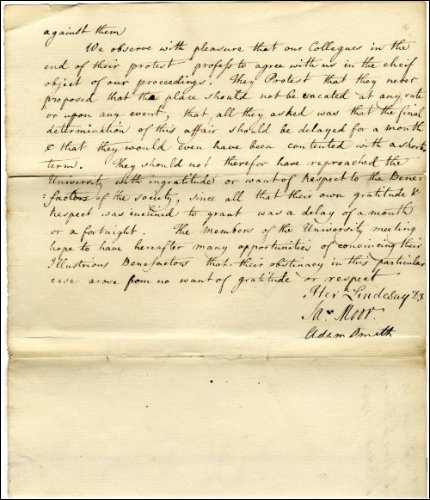 against them
We observe with pleasure that our Collegues in the
end of their protest profess to agree with us in the cheif
object of our proceedings. They Protest that they never
proposed that the place should not be vacated at any rate
or upon any event, that all they asked was that the final
determination of this affair should be delayed for a month
& that they would Even have been contented with a shorter
term. They should not therefor have reproached the
University with ingratitude or want of respect to the Bene-
:factors of the society, since all that their own gratitude &
respect was inclined to grant was a delay of a month
or a fortnight. The members of the University meeting
hope to have hereafter many opportunities of convincing their
Illustrious Benefactors that their obstinacy in this particular
case arose from no want of gratitude or respect
Lindesay
Ja. Moor.
Adam Smith